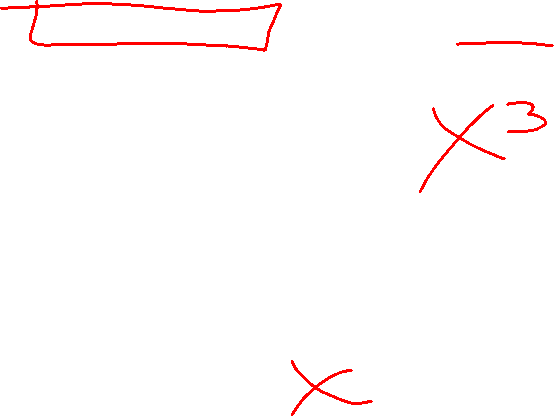 x³
x